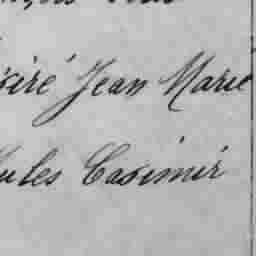 siré Jean Marie
ules Casimir